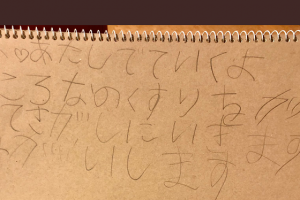 ♡あたしでていくよ
ころなのくすり
てさがしにいきます
いします